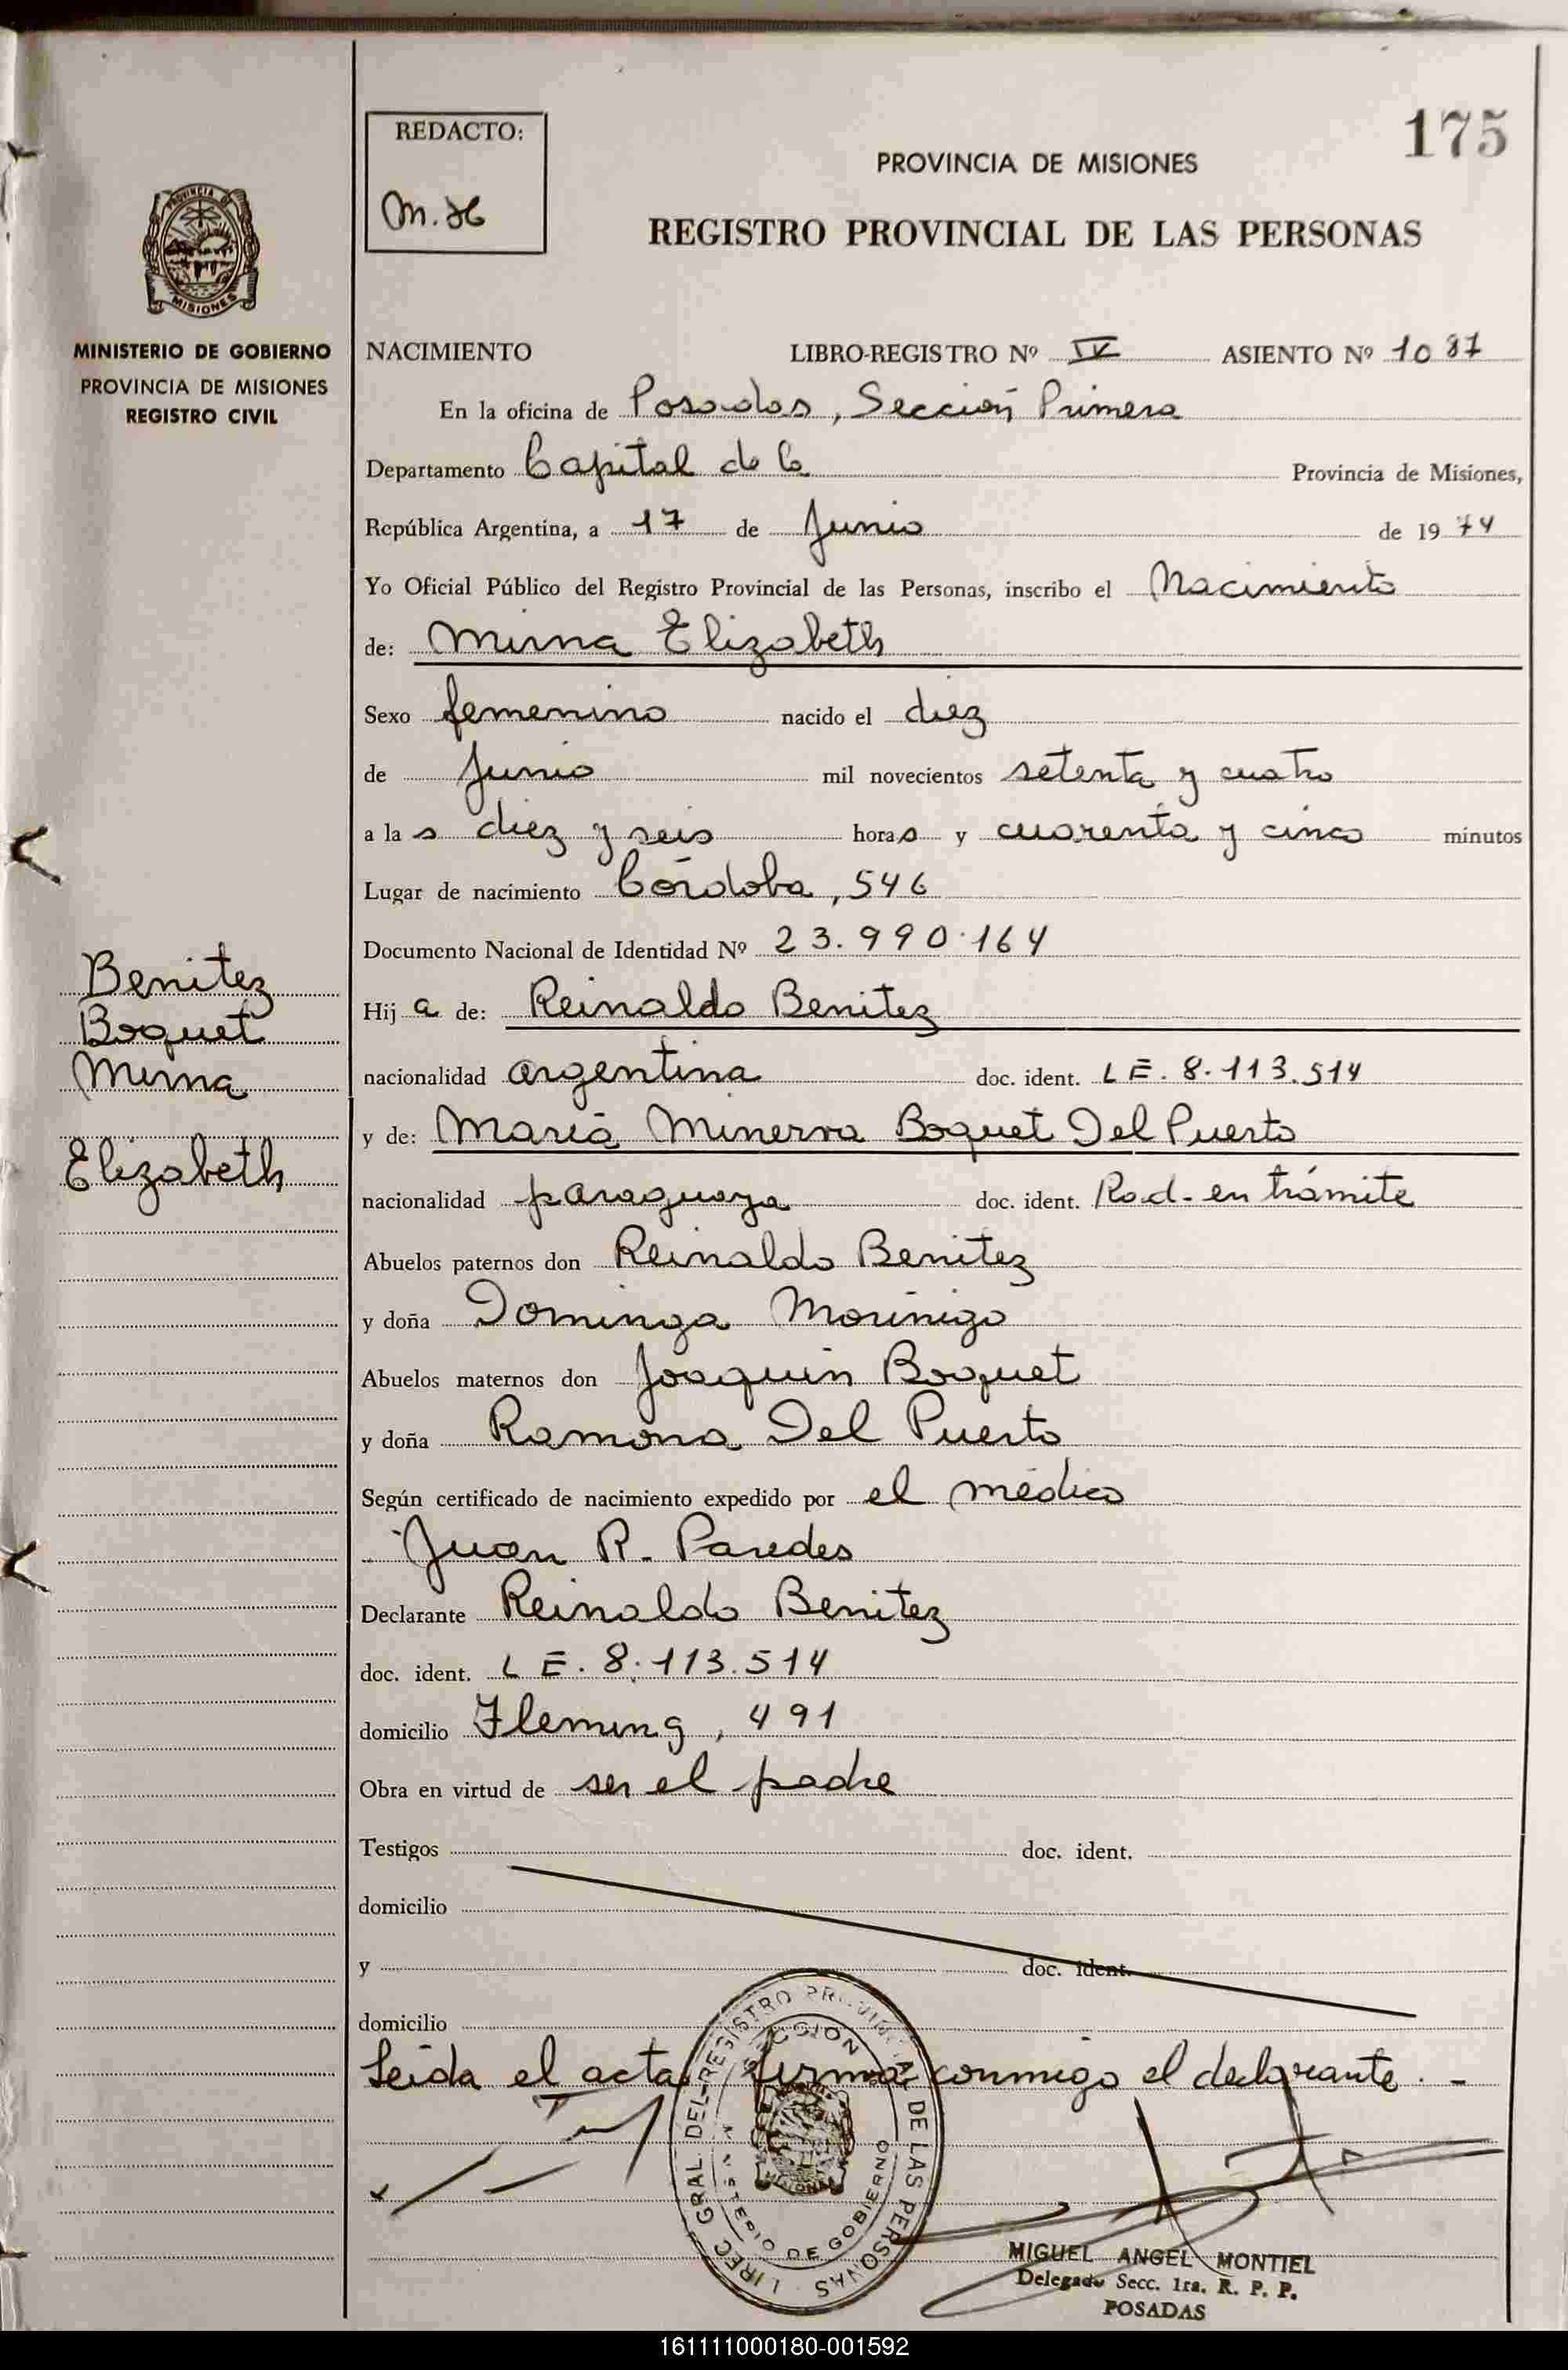 175
REDACTO:
M.
PROVINCIA DE MISIONES
REGISTRO PROVINCIAL DE LAS PERSONAS
PROVINCIA DE
MISIONES
MINISTERIO DE GOBIERNO
PROVINCIA DE MISIONES
REGISTRO CIVIL
NACIMIENTO LIBRO-REGISTRO Nº IV ASIENTO Nº 1087
En la oficina de Posadas, Sección Primera
Departamento Capital de la Provincia de Misiones,
República Argentina, a 17 de Junio de 1974
Yo Oficial Público del Registro Provincial de las Personas, inscribo el Nacimiento
de: Mirna Elizabeth
Sexo femenino nacido el diez
de Junio mil novecientos setenta y cuatro
a las diez y seis horas y cuarenta y cinco minutos
Lugar de nacimiento Córdoba, 546
Documento Nacional de Identidad Nº 23.990.164
Benitez
Boquet
Mirna
Elizabeth
Hija de: Reinaldo Benitez
nacionalidad argentina doc. ident. L E. 8.113.514
y de: María Minerva Boquet Del Puerto
nacionalidad paraguaya doc. ident. Rad. en trámite
Abuelos paternos don Reinaldo Benitez
y doña Dominga Morinigo
Abuelos maternos don Joaquin Boquet
y doña Ramona Del Puerto
Según certificado de nacimiento expedido por el médico
Juan R. Paredes
Declarante Reinaldo Benitez
doc. ident. L E. 8.113.514
domicilio Fleming, 491
Obra en virtud de ser el padre
Testigos doc. ident.
domicilio
y doc. ident.
domicilio
Leida el acta firma conmigo el declarante. -
DIREC GRAL DEL REGISTRO PROVINCIAL DE LAS PERSONAS
SECCION
MINISTERIO DE GOBIERNO
MIGUEL ANGEL MONTIEL
Delegado Secc. 1ra. R. P. P.
POSADAS
161111000180-001592